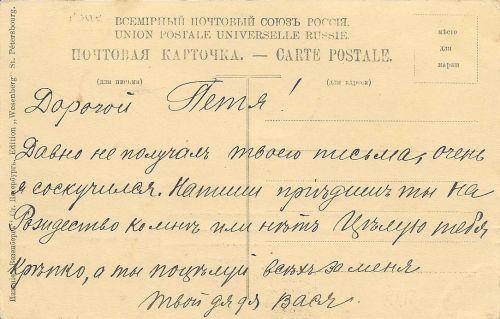 ВСЕМІРНЫЙ ПОЧТОВЫЙ СОЮЗЪ РОССІЯ.
UNION POSTALE UNIVERSELLE RUSSIE.
ПОЧТОВАЯ КАРТОЧКА. — CARTE POSTALE.
мѣсто
для
марки
(для письма)
(для адреса)
Дорогой Петя!
Давно не получалъ твоего письма, очень
я соскучился. Напиши пріѣдишъ ты на
Рождество ко мнѣ или нѣтъ Цѣлую тебя
крѣпко, а ты поцѣлуй всѣхъ за меня
твой дядя Вася.
"Wesenberg" St. Pétersbourg.